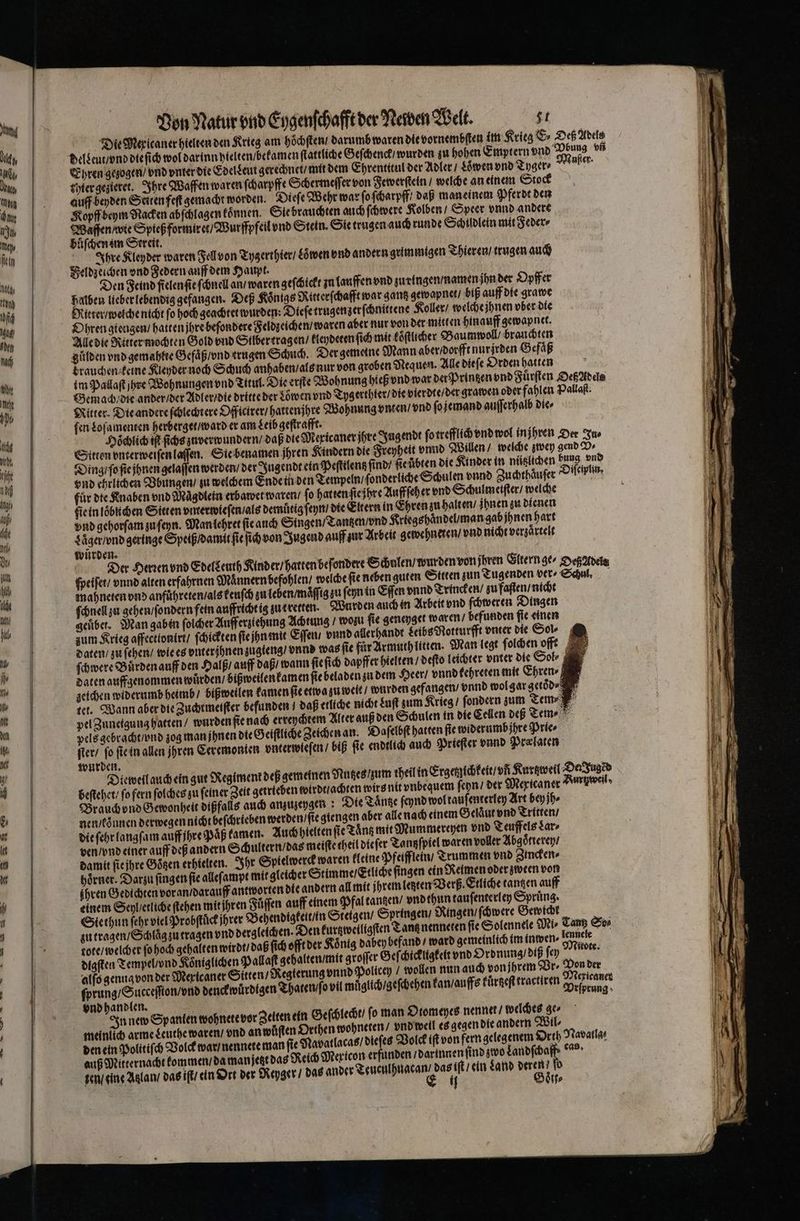 Von Natur vnd Eygenschafft der Newen Welt. 51
Die Mexicaner hielten den Krieg am höchsten/ darumb waren die vornembsten im Krieg E-
delLeut/vnd die sich wol darinn hielten/bekamen stattliche Geschenck/wurden zu hohen Emptern vnd
Ehren gezogen/ vnd vnter die EdelLeut gerechnet/ mit dem Ehrentitul der Adler/ Löwen vnd Tyger-
thier gezieret. Ihre Waffen waren scharpffe Schermesser von Fewerstein/ welche an einem Stock
auff beyden Seiten fest gemacht worden. Diese Wehr war so scharpff/ daß man einem Pferde den
Kopff beym Nacken abschlagen können. Sie brauchten auch schwere Kolben/ Speer vnnd andere
Waffen/wie Spieß formiret/Wurffpfeil vnd Stein. Sie trugen auch runde Schildlein mit Feder-
büschen im Streit.
Deß Adels
Vbung vñ
Muster.
Ihre Kleyder waren Fell von Tygerthier/ Löwen vnd andern grimmigen Thieren/ trugen auch
Feldzeichen vnd Federn auff dem Haupt.
Den Feind fielen sie schnell an/ waren geschickt zu lauffen vnd zu ringen/namen jhn der Opffer
halben lieber lebendig gefangen. Deß Königs Ritterschafft war gantz gewapnet/ biß auff die grawe
Ritter/welche nicht so hoch geachtet wurden: Diese trugen zerschnittene Koller/ welche jhnen vber die
Ohren giengen/ hatten jhre besondere Feldzeichen/waren aber nur von der mitten hinauff gewapnet.
Alle die Ritter mochten Gold vnd Silber tragen/ kleydeten sich mit köstlicher Baumwoll/ brauchten
gülden vnd gemahlte Gefäß/vnd trugen Schuch. Der gemeine Mann aber/dorfft nur jrden Gefäß
brauchen/keine Kleyder noch Schuch anhaben/als nur von groben Nequen. Alle diese Orden hatten
im Pallast jhre Wohnungen vnd Titul. Die erste Wohnung hieß vnd war der Printzen vnd Fürsten
Gemach/die ander/der Adler/die dritte der Löwen vnd Tygerthier/die vierdte/der grawen oder fahlen
Ritter. Die andere schlechtere Officirer/ hatten jhre Wohnung vnten/ vnd so jemand ausserhalb die-
sen Losamenten herberget/ward er am Leib gestrafft.
Deß Adels
Pallast.
Höchlich ist sichs zuverwundern/ daß die Mexicaner jhre Jugendt so trefflich vnd wol in jhren
Sitten vnterweisen lassen. Sie benamen jhren Kindern die Freyheit vnnd Willen/ welche zwey
Ding/ so sie jhnen gelassen werden/ der Jugendt ein Pestilentz sind/ sie übten die Kinder in nützlichen
vnd ehrlichen Vbungen/ zu welchem Ende in den Tempeln/ sonderliche Schulen vnnd Zuchthäuser
für die Knaben vnd Mägdlein erbawet waren/ so hatten sie jhre Auffseher vnd Schulmeister/ welche
sie in löblichen Sitten vnterwiesen/als demütig seyn/ die Eltern in Ehren zu halten/ jhnen zu dienen
vnd gehorsam zu seyn. Man lehret sie auch Singen/Tantzen/vnd Kriegshändel/man gab jhnen hart
Läger/vnd geringe Speiß/damit sie sich von Jugend auff zur Arbeit gewehneten/ vnd nicht verzärtelt
würden.
Der Ju-
gend V-
bung vnd
Disciplin.
Der Herren vnd EdelLeuth Kinder/ hatten besondere Schulen/ wurden von jhren Eltern ge-
speiset/ vnnd alten erfahrnen Männern befohlen/ welche sie neben guten Sitten zun Tugenden ver-
mahneten vnd anführeten/als keusch zu leben/mässig zu seyn in Essen vnnd Trincken/ zu fasten/ nicht
schnell zu gehen/sondern fein auffrichtig zu tretten. Wurden auch in Arbeit vnd schweren Dingen
geübet. Man gab in solcher Aufferziehung Achtung/ wozu sie geneyget waren/ befunden sie einen
zum Krieg affectionirt/ schickten sie jhn mit Essen/ vnnd allerhandt Leibs Notturfft vnter die Sol-
daten/ zu sehen/ wie es vnter jhnen zugieng/ vnnd was sie für Armuth litten. Man legt solchen offt
schwere Bürden auff den Halß/ auff daß/ wann sie sich dapffer hielten/ desto leichter vnter die Sol-
daten auffgenommen würden/ bißweilen kamen sie beladen zu dem Heer/ vnnd kehreten mit Ehren-
zeichen widerumb heimb/ bißweilen kamen sie etwa zu weit/ wurden gefangen/ vnnd wol gar getöd-
tet. Wann aber die Zuchtmeister befunden/ daß etliche nicht Lust zum Krieg/ sondern zum Tem-
pel Zuneigung hatten/ wurden sie nach erreychtem Alter auß den Schulen in die Cellen deß Tem-
pels gebracht/vnd zog man jhnen die Geistliche Zeichen an. Daselbst hatten sie widerumb jhre Prie-
ster/ so sie in allen jhren Ceremonien vnterwiesen/ biß sie endtlich auch Priester vnnd Prælaten
wurden.
Deß Adels
Schul.
Dieweil auch ein gut Regiment deß gemeinen Nutzes/zum theil in Ergetzlichkeit/vñ Kurtzweil
bestehet/ so fern solches zu seiner Zeit getrieben wirdt/achten wirs nit vnbequem seyn/ der Mexicaner
Brauch vnd Gewonheit dißfalls auch anzuzeygen: Die Täntze seynd wol tausenterley Art bey jh-
nen/können derwegen nicht beschrieben werden/sie giengen aber alle nach einem Geläut vnd Tritten/
die sehr langsam auff jhre Päß kamen. Auch hielten sie Täntz mit Mummereyen vnd Teuffels Lar-
ven/vnd einer auff deß andern Schultern/das meiste theil dieser Tantzspiel waren voller Abgötterey/
damit sie jhre Götzen erhielten. Ihr Spielwerck waren kleine Pfeifflein/ Trummen vnd Zincken-
hörner. Darzu singen sie allesampt mit gleicher Stimme/Etliche singen ein Reimen oder zween von
jhren Gedichten voran/darauff antworten die andern all mit jhrem letzten Verß. Etliche tantzen auff
einem Seyl/etliche stehen mit jhren Füssen auff einem Pfal tantzen/ vnd thun tausenterley Sprüng.
Sie thun sehr viel Probstück jhrer Behendigkeit/in Steigen/ Springen/ Ringen/schwere Gewicht
zu tragen/Schläg zu tragen vnd dergleichen. Den kurtzweiligsten Tantz nenneten sie Solennele Mi-
tote/welcher so hoch gehalten wirdt/ daß sich offt der König dabey befand/ ward gemeinlich im inwen-
digsten Tempel/vnd Königlichen Pallast gehalten/mit grosser Geschickligkeit vnd Ordnung/diß sey
also genug von der Mexicaner Sitten/Regierung vnnd Policey/ wollen nun auch von jhrem Vr-
sprung/Succession/vnd denckwürdigen Thaten/so vil müglich/geschehen kan/auffs kürtzest tractiren
vnd handlen.
Der Jugēd
Kurtzweil.
Tantz So-
lennele
Mitote.
Von der
Mexicaner
Vrsprung.
In new Spanien wohnete vor Zeiten ein Geschlecht/ so man Otomeyes nennet/ welches ge-
meinlich arme Leuthe waren/ vnd an wüsten Orthen wohneten/ vnd weil es gegen die andern Wil-
den ein Politisch Volck war/ nennete man sie Navatlacas/dieses Volck ist von fern gelegenem Orth
auß Mitternacht kommen/da man jetzt das Reich Mexicon erfunden/darinnen sind zwo Landschaff-
ten/ eine Aztlan/ das ist/ ein Ort der Reyger/ das ander Teuculhuacan/ das ist/ ein Land deren/ so
Navatla-
cas.
E ij Gött-